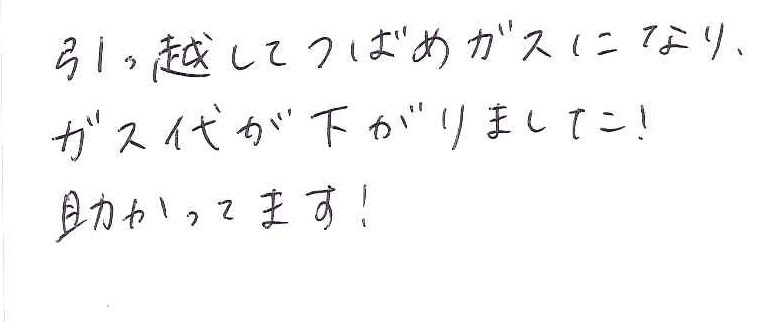 引っ越してつばめガスになり、
ガス代が下がりました！
助かってます！